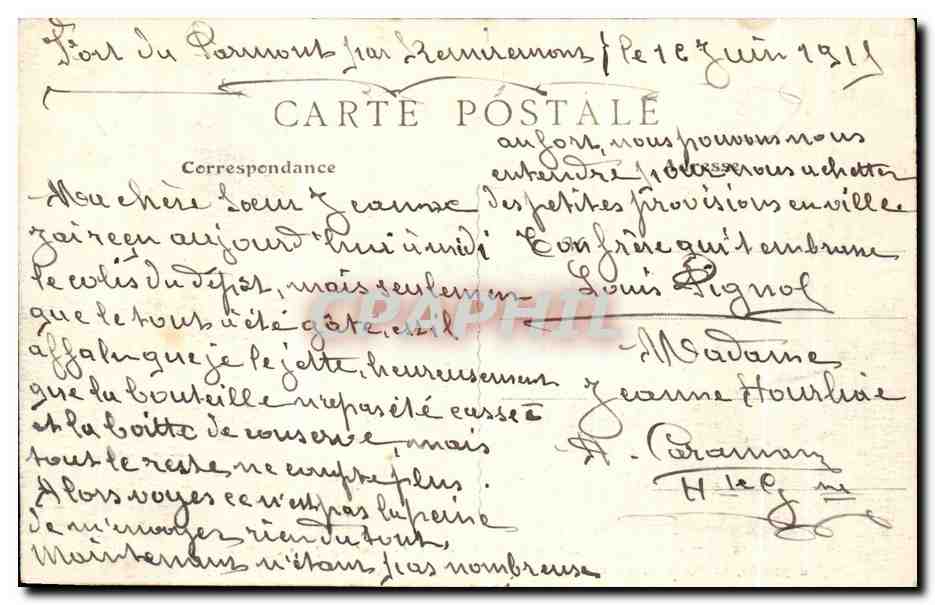 Fort du Parmont par Remiremont le 1e Juin 1915
CARTE POSTALE
Correspondance
Adresse
Ma chère Sœur Jeanne
J'ai reçu aujourd'hui à midi
le colis du dépot, mais seulemen
que le tout a été gâte, et il
a fallu que je le jette, heureusement
que la bouteille n'a pas été cassée
et la boitte de conserve, mais
tout le reste ne compte plus.
Alors voyes ce n'est pas la peine
de m'envoyer rien du tout,
Maintenant n'étant pas nombreuse
au fort, nous pouvons nous
entendre pour nous achetter
des petites provisions en ville
Ton frère qui t'embrasse
Louis Pignol
CPAPHIL
Madame
Jeanne
A. Caraman
Hte Gne